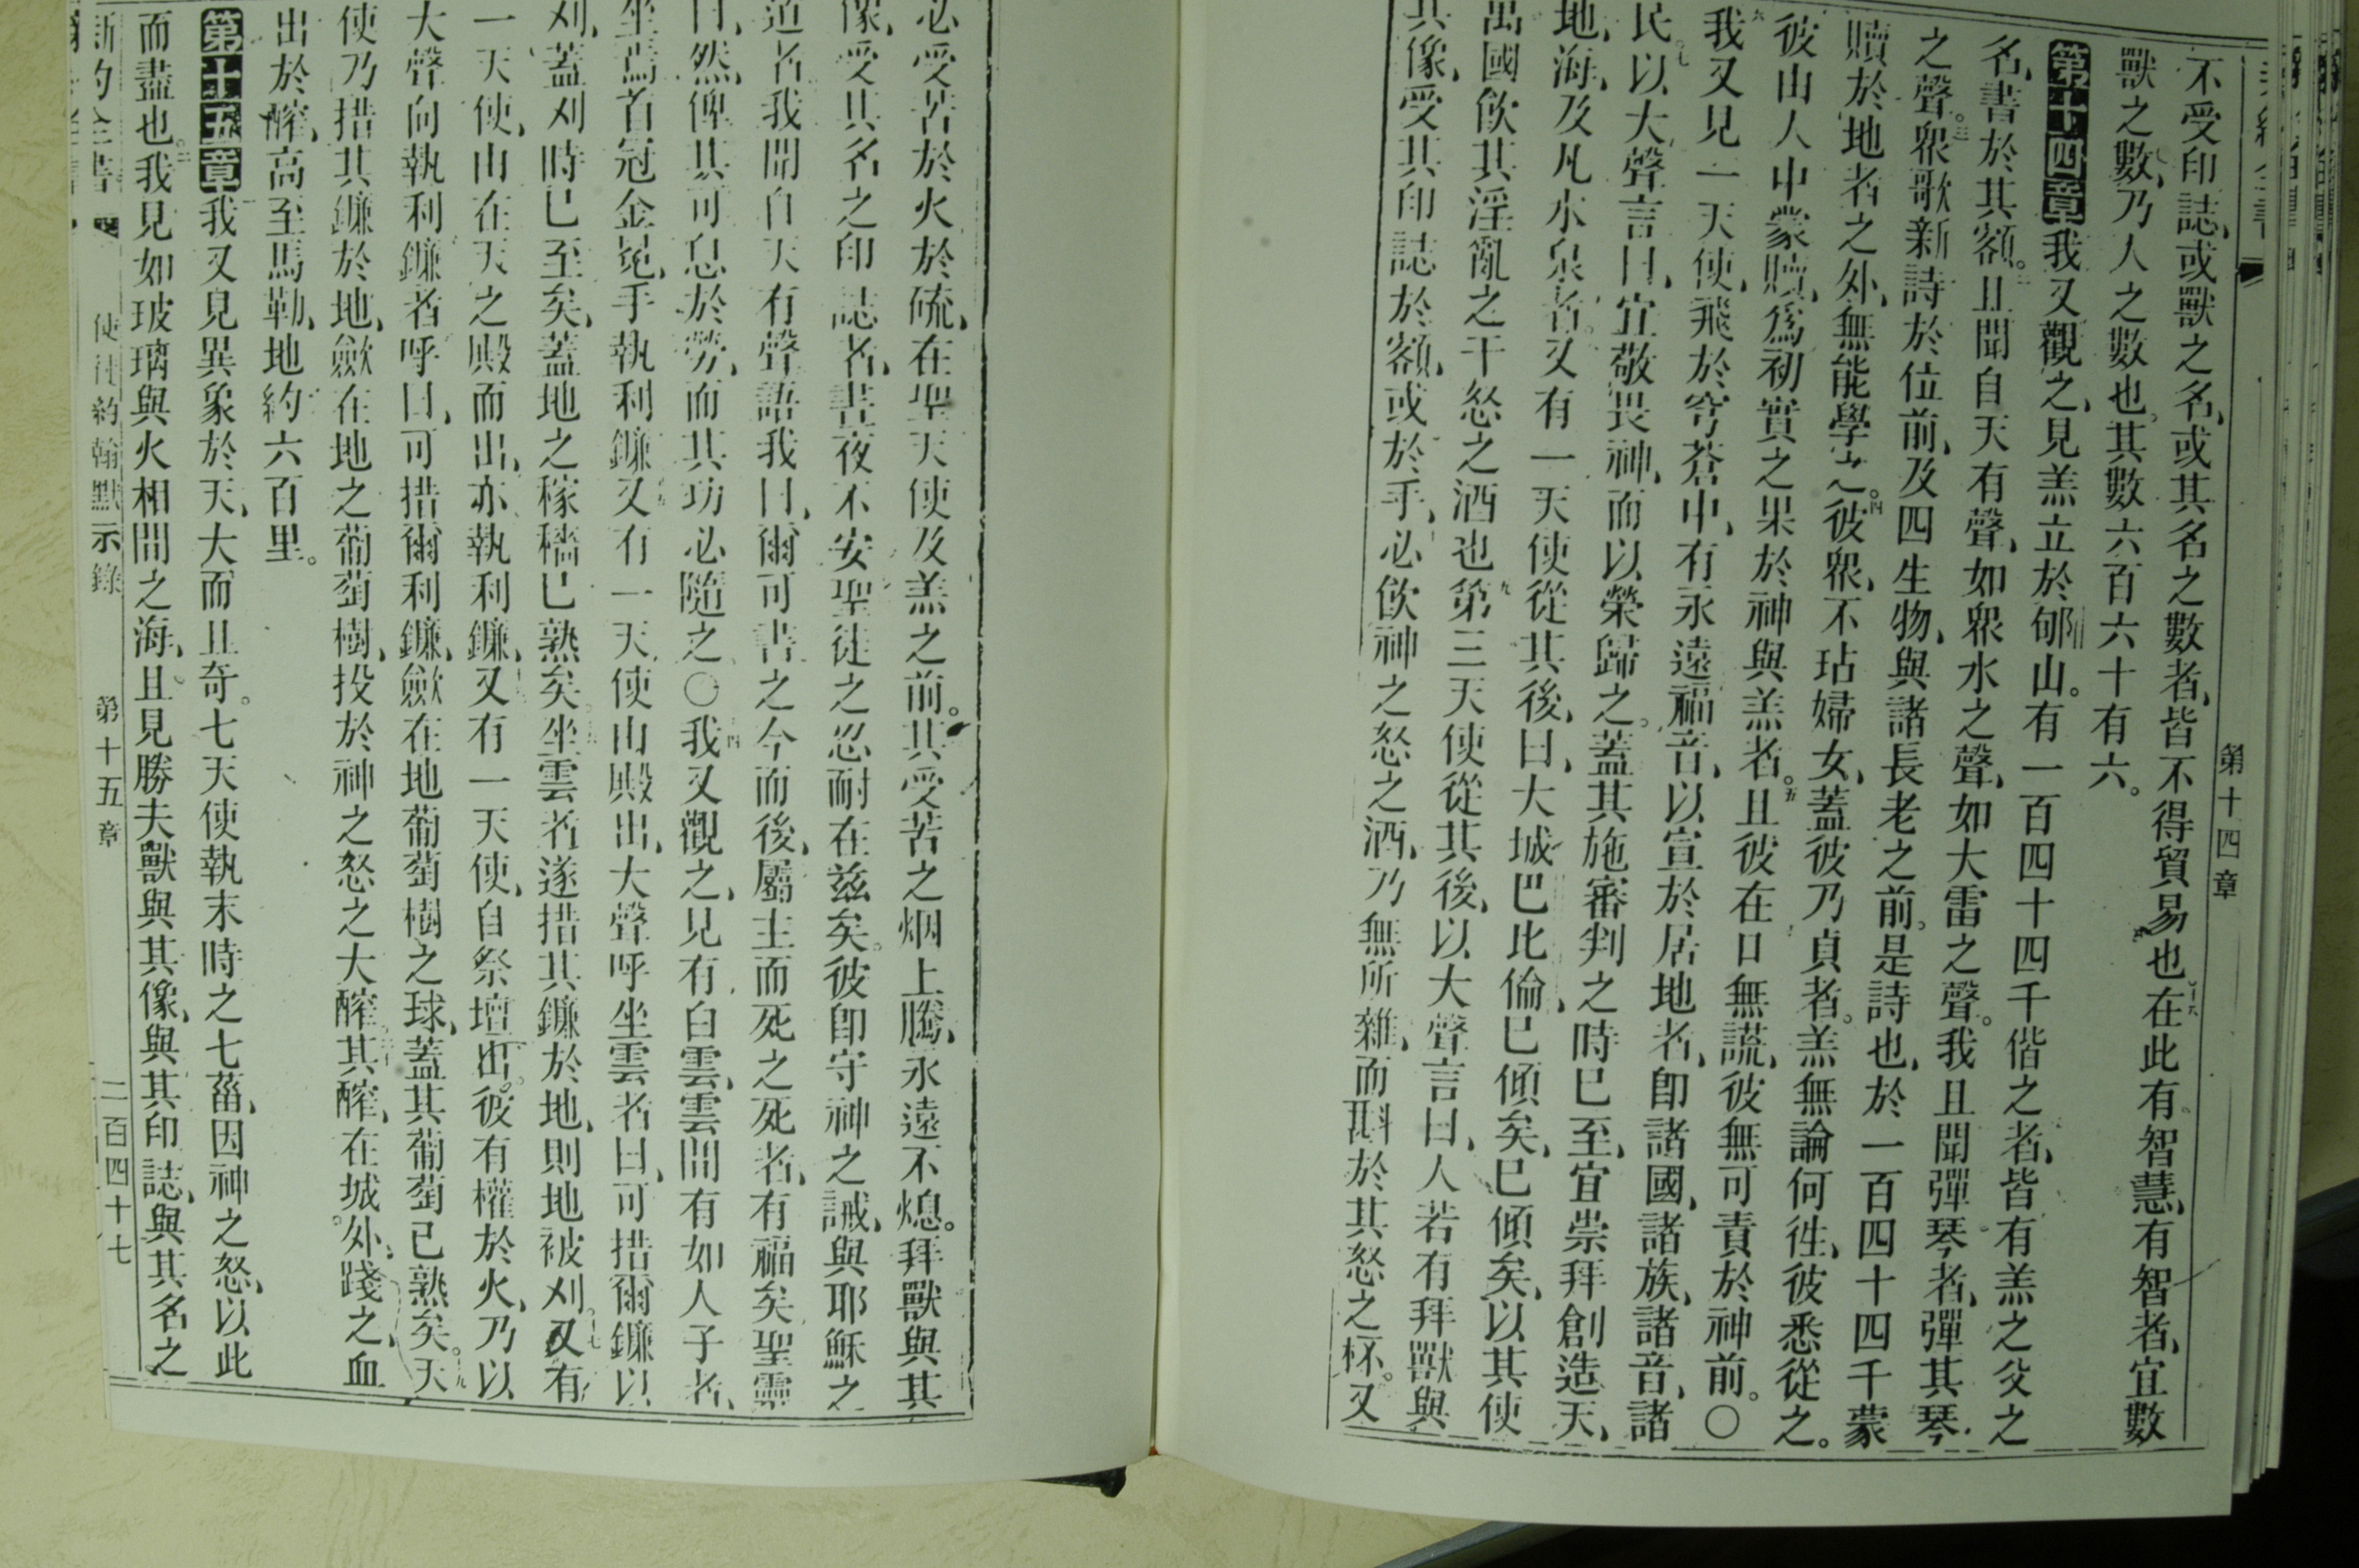 第十四章
不受印誌、或獸之名、或其名之數者、皆不得貿易也、在此有智慧、有智者、宜數
獸之數、乃人之數也。其數六百六十有六。
第十四章我又觀之、見羔立於郇山。有一百四十四千偕之者、皆有羔之父之
名、書於其額。且聞自天有聲、如眾水之聲、如大雷之聲。我且聞彈琴者、彈其琴
之聲。眾歌新詩於位前、及四生物、與諸長老之前。是詩也、於一百四十四千蒙
贖於地者之外、無能學之。彼眾、不玷婦女、蓋彼乃貞者。羔無論何徃、彼悉從之。
彼由人中蒙贖、爲初實之果於神與羔者。且彼在口無謊、彼無可責於神前。〇
我又見一天使、飛於穹蒼中、有永遠福音、以宣於居地者、卽諸國、諸族、諸音、諸
民、以大聲言曰、宜敬畏神、而以榮歸之。蓋其施審判之時已至、宜崇拜創造天、
地、海、及凡水泉者。又有一天使從其後、曰、大城巴比倫、已傾矣、已傾矣、以其使
萬國飲其淫亂之干怒之酒也。第三天使從其後、以大聲言曰、人若有拜獸與
其像、受其印誌於額、或於手、必飲神之怒之酒、乃無所雜、而斟於其怒之杯。又
必受苦於火於硫、在聖天使及羔之前。其受苦之烟上騰、永遠不熄。拜獸與其
像、受其名之印誌者、晝夜不安。聖徒之忍耐在兹矣。彼卽守神之誡、與耶穌之
道者。我聞自天有聲語我曰、爾可書之、今而後、屬主而死之死者、有福矣。聖靈
曰、然、俾其可息於勞、而其功必隨之。〇我又觀之、見有白雲、雲間有如人子者、
坐焉、首冠金冕、手執利鐮。又有一天使由殿出、大聲呼坐雲者曰、可措爾鐮以
刈、蓋刈時已至矣、蓋地之稼穡已熟矣。坐雲者遂措其鐮於地、則地被刈。又有
一天使、由在天之殿而出、亦執利鐮、又有一天使、自祭壇出。彼有權於火、乃以
大聲向執利鐮者呼曰、可措爾利鐮、斂在地葡萄樹之球、蓋其葡萄已熟矣。天
使乃措其鐮於地、斂在地之葡萄樹、投於神之怒之大醡。其醡、在城外、踐之、血
出於醡、高至馬勒、地約六百里。
第十五章我又見異象於天、大而且奇。七天使執末時之七菑、因神之怒、以此
而盡也。我見如玻璃與火相間之海、且見勝夫獸與其像、與其印誌、與其名之
新約全書 使徒約翰默示錄 第十五章 二百四十七